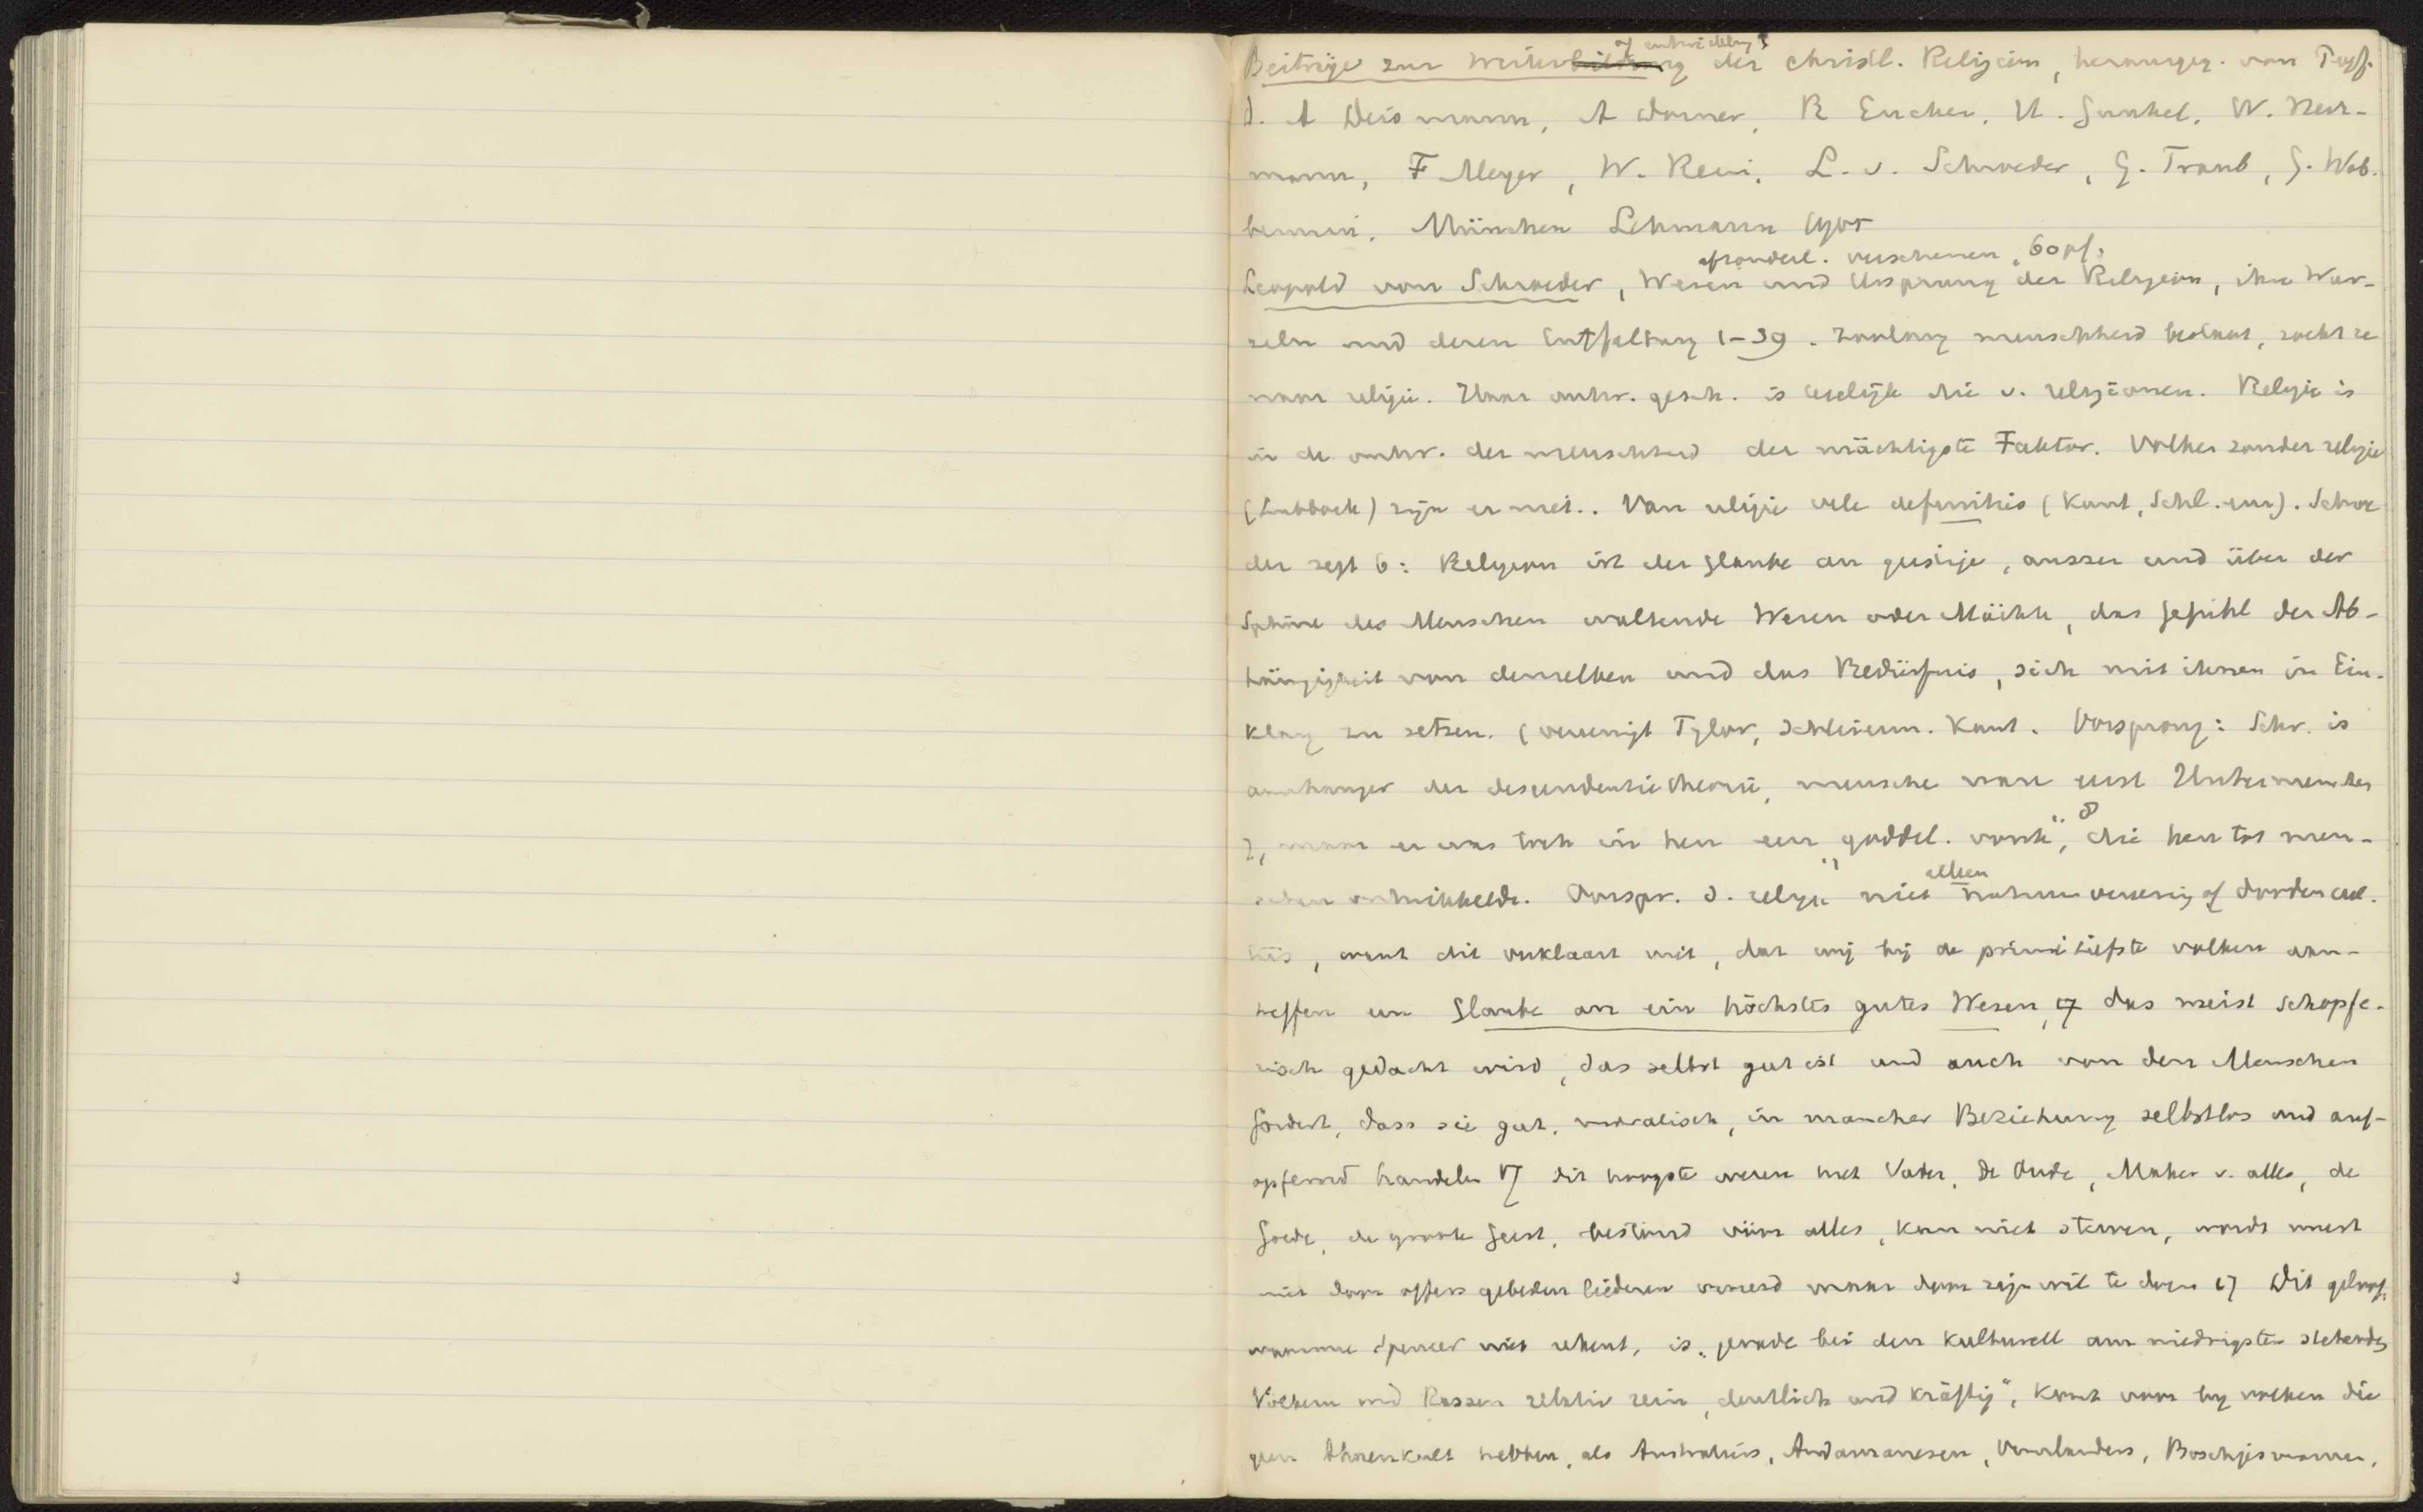 of entwicklung
Beiträge zur Weiterbildung der christl. Religion, herausgeg. von Prof.
d. A Deismann, A Dorner, R Eucken, H. Gunkel, W. Herr-
mann, F Meyer, W. Rein, L. v. Schroeder, G. Traub, G. Wob-
bermin. München Lehmann 1905
afzonderl. verschenen, 60 pf.
Leopold von Schroeder, Wesen und Ursprung der Religion, ihre Wur-
zeln und deren Entfaltung 1-39. Zoolang menschheid bestaat, zoekt ze
naar religie. Haar ontw. gesch. is eigelijk die v. religionen. Religie is
in de ontw. der menschheid der mächtigste Faktor. Volken zonder religie
(Lubbock) zijn er niet.. Van religie vele definities (Kant, Schl. enz). Schroe
der zegt 6: Religion ist der Glaube an geistige, ausser und über der
Sphäre des Menschen waltende Wesen oder Mächte, das Gefühl der Ab-
hängigkeit von denselben und das Bedürfnis, sich mit ihnen in Ein-
klang zu setzen. (vereenigt Tylor, Schleierm. Kant. Oorsprong: Schr. is
aanhanger der descendentietheorie, mensche ware eerst Untermenschen
7, maar er was toch in hen een "goddel. vonk", 8 die hen tot men-
schen ontwikkelde. Oorspr. d. religie niet alleen natuurvereering of doodencul-
tus, want dit verklaart niet, dat wij bij de primitiefste volken aan-
treffen een Glaube an ein höchstes gutes Wesen, 17 das meist schöpfe-
risch gedacht wird, das selbst gut ist und auch von den Menschen
fordert, dass sie gut, moralisch, in mancher Beziehung selbstlos und auf-
opfernd handeln 17 dit hoogste wezen heet Vader, de Oude, Maker v. alles, de
Goede, de groote Geest, bestond vóór alles, kan niet sterven, wordt meest
niet door offers gebeden liederen vereerd maar door zijn wil te doen 17 Dit geloof,
waarmee Spencer niet rekent, is "gerade bei den kulturell am niedrigsten stehenden
Völkern und Rassen relativ rein, deutlich und kräftig", komt voor bij volken die
geen Ahnenkult hebben, als Australiers, Andamanesen, Vuurlanders, Boschjesmannen,